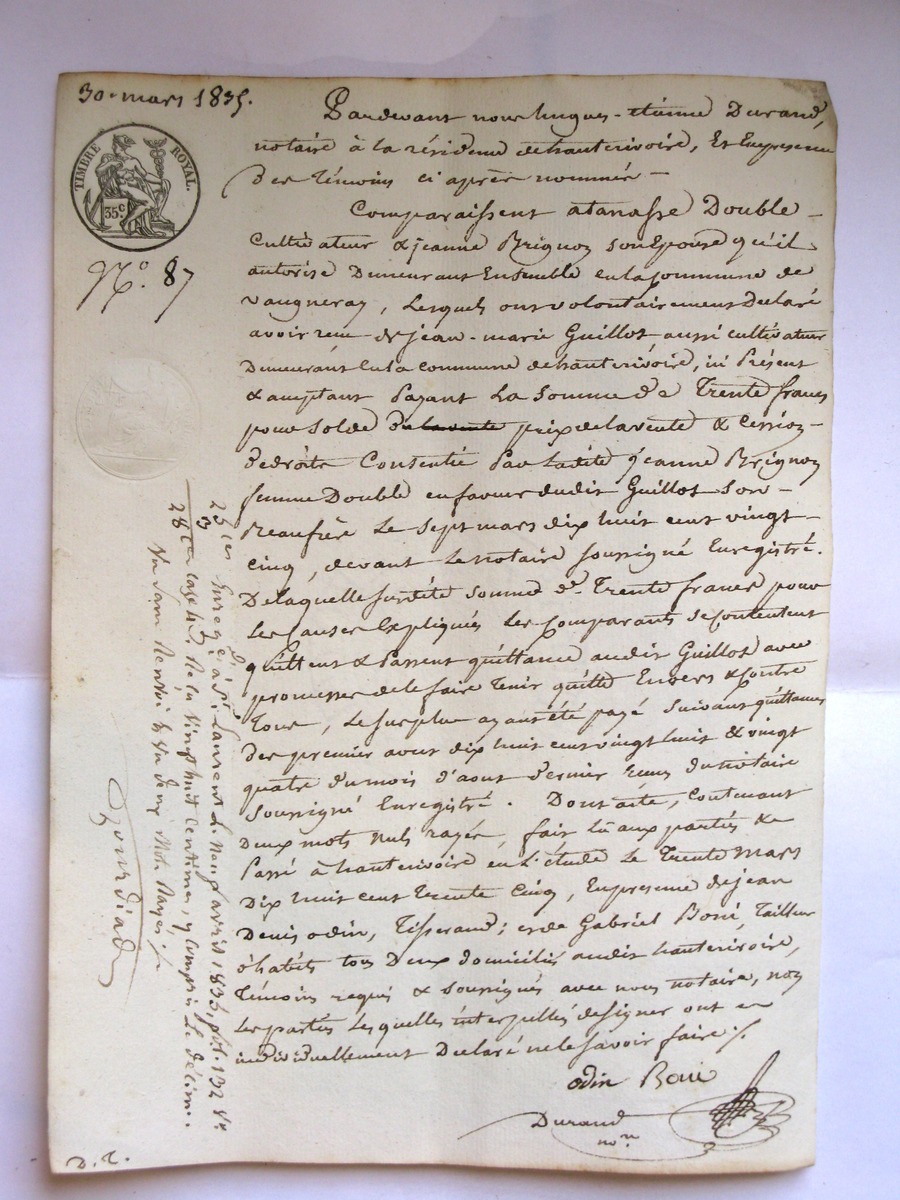 30. mars 1835.
TIMBRE ROYAL.
35c
N.o 87
Pardevant nous hugues-étienne Durand,
notaire à la résidence de hauterivoire, Et En presence
Des témoins ci après nommés -
Comparaissent atanasse Double -
Cultivateur & jeanne Brignon son Epouse qu'il
autorise Demeurant Ensemble en la Commune de
vaugneray, Lesquels ont volontairement Declaré
avoir recu de jean-marie Guillot aussi cultivateur
Demeurant En la commune de hauterivoire, ici Présent
& acceptant Payant La Somme de Trente francs
pour Solde de la vente prix de la vente & Cession -
de droits Consentie Par Ladite jeanne Brignon
femme Double en faveur dudit Guillot Son -
Beaufrère Le Sept mars dix huit cent vingt -
cinq, devant Le notaire soussigné Enregistré.
De laquelle susdite somme de Trente francs pour
Les causes Expliquées Les Comparants se contentent
quittent & Passent quittance audit Guillot avec
promesse de le faire tenir quitte Envers & Contre
Tous, Le surplus ayant été payé Suivant quittances
Des premier aout dix huit cent vingt huit & vingt
quatre du mois d'aout dernier recues du notaire
Soussigné Enregistré. Dont acte, Contenant
Deux mots nuls rayés, fait lû aux parties &
Passé à hauterivoire en L'étude Le Trente Mars
Dix huit cent trente Cinq, En presence de jean
Denis odin, Tisserand; et de Gabriel Boué, Tailleur
d'habits tous Deux domiciliés audit hauterivoire,
témoins requis & soussignés avec nous notaire, non
Les parties Lesquelles interpellées de signer ont
individuellement Declaré ne le savoir faire ./.
odin Boué
Durand
nore
25 ces Enregé à St Laurent Le neuf avril 1835, fol. 132 Vo
3
28 ces case Reçu vingt huit centimes, y compris Le décime.
mots Rayés
D. T.